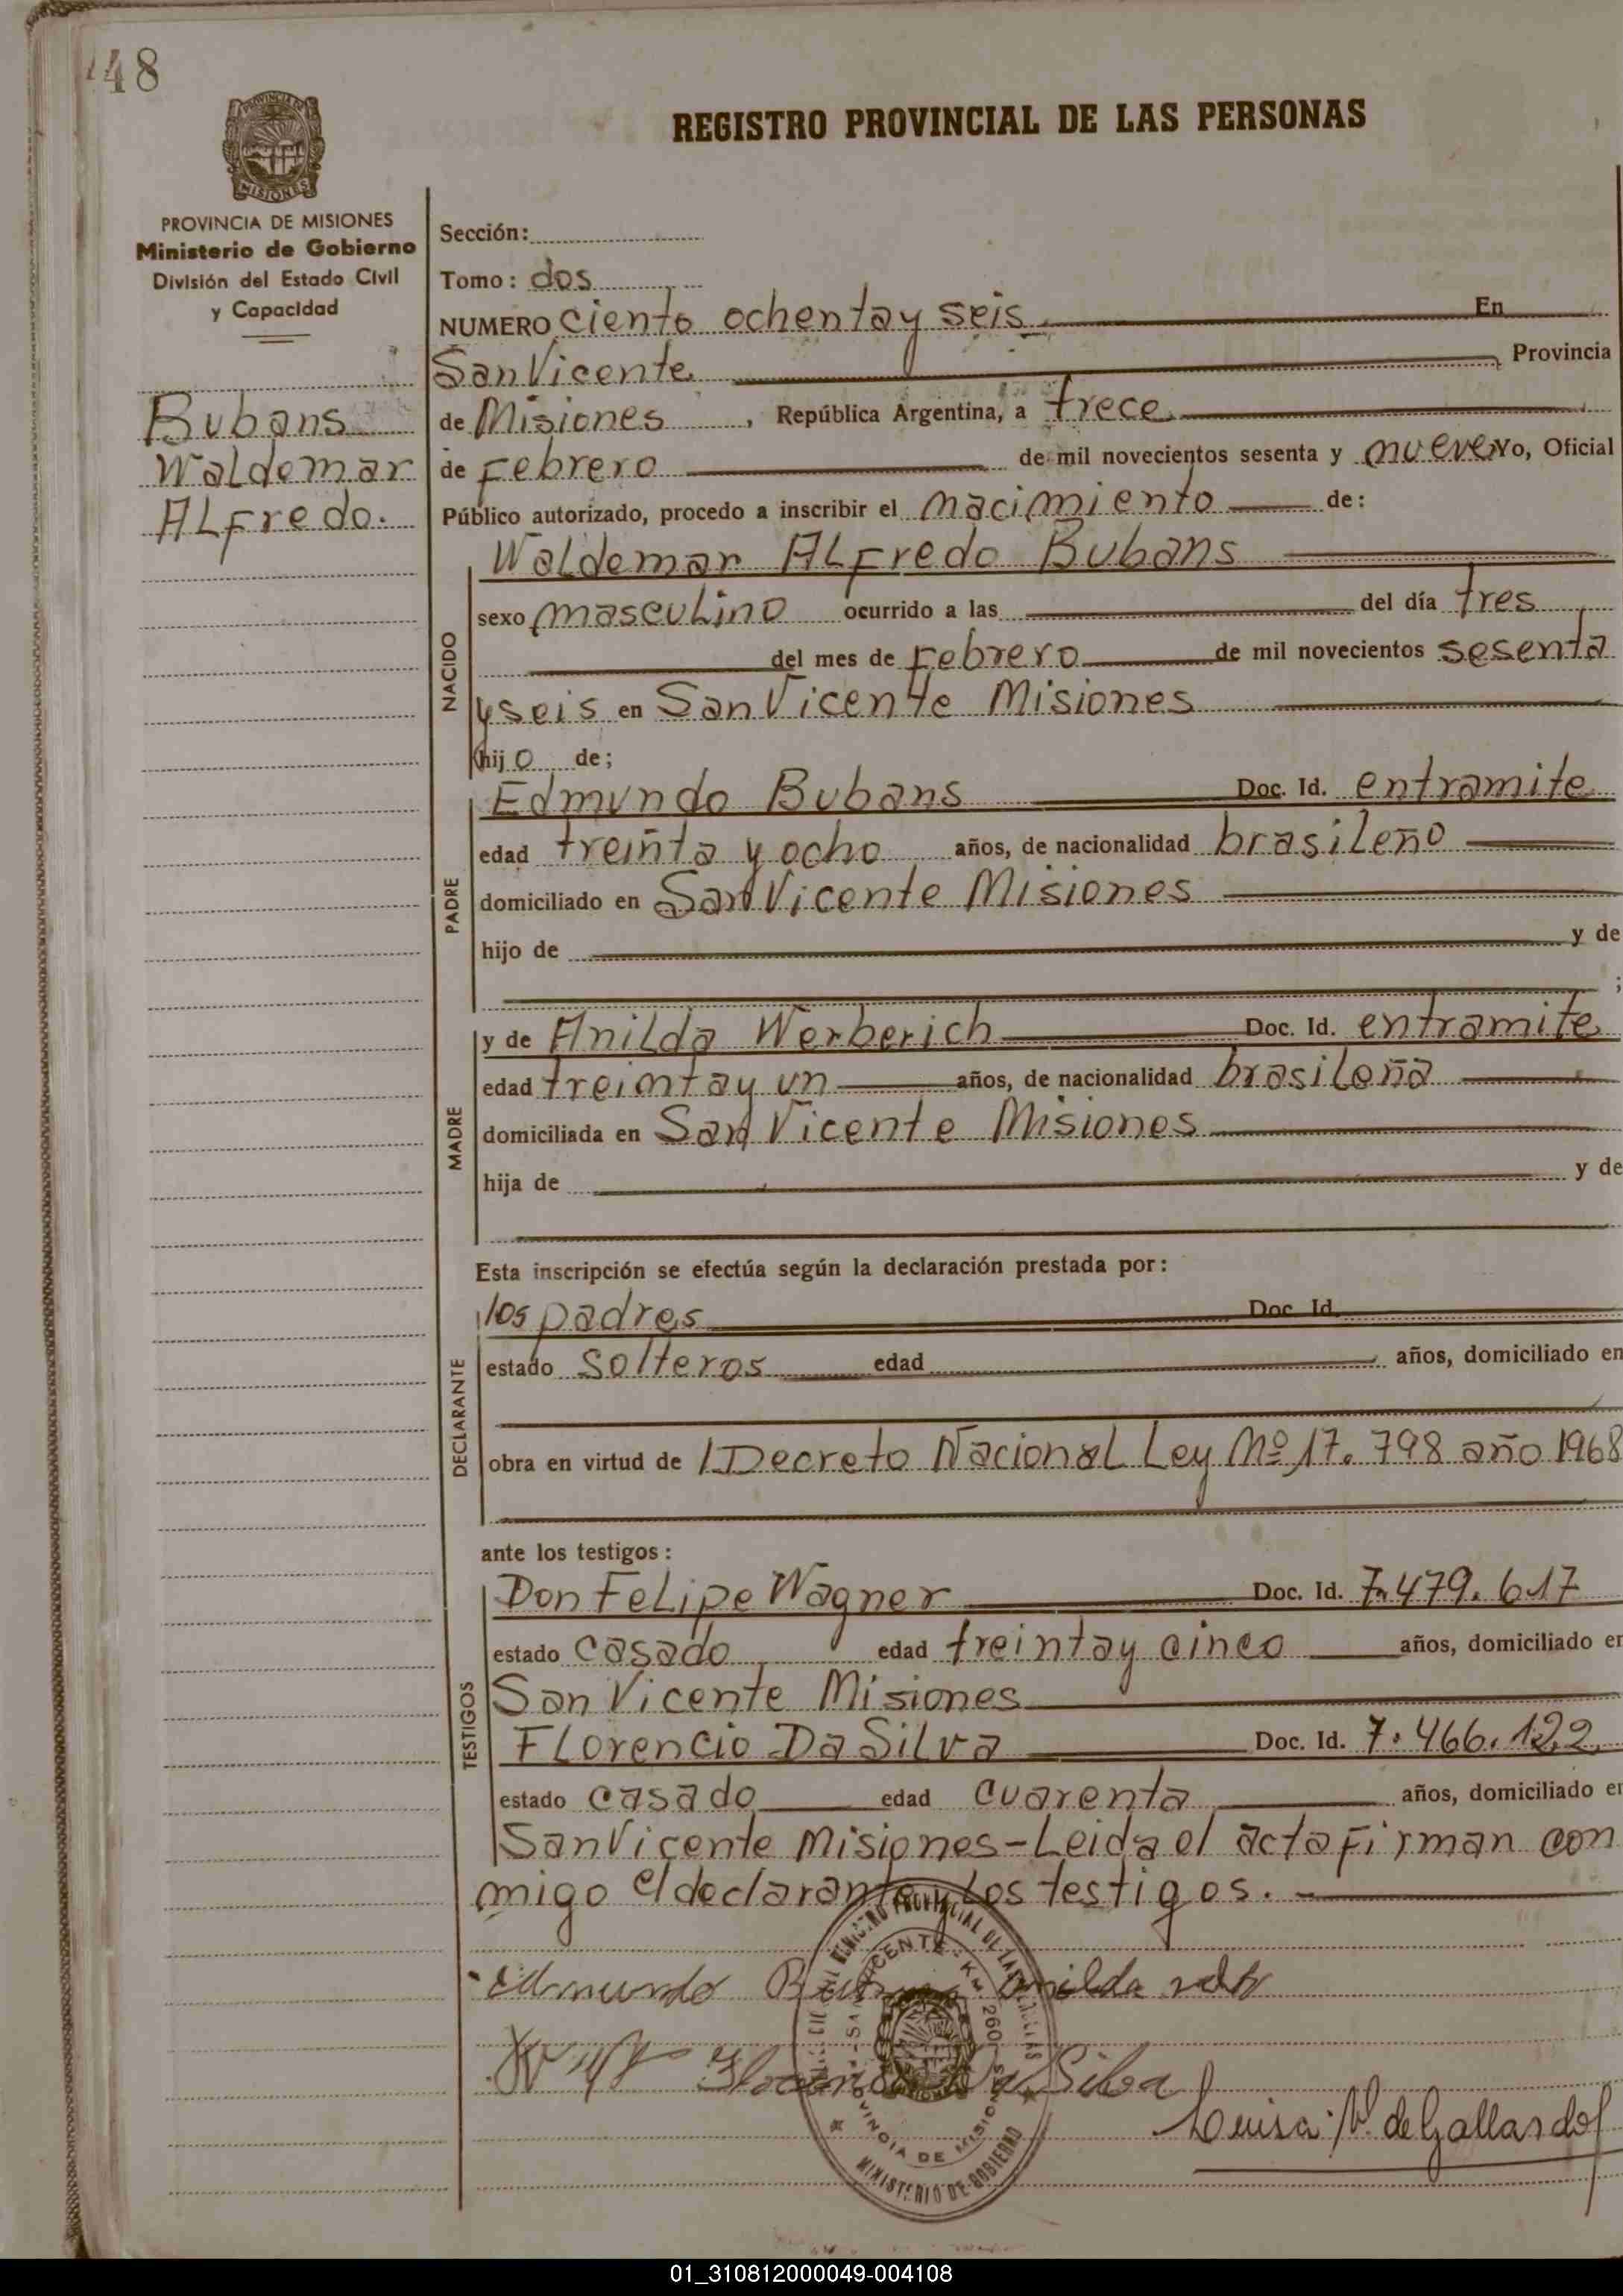 148
REGISTRO PROVINCIAL DE LAS PERSONAS
PROVINCIA DE MISIONES
MISIONES
PROVINCIA DE MISIONES
Ministerio de Gobierno
División del Estado Civil
y Capacidad
Bubans
Waldemar
Alfredo.
Sección:
Tomo: dos
NUMERO ciento ochenta y seis En
San Vicente, Provincia
de Misiones, República Argentina, a trece
de Febrero de mil novecientos sesenta y nueve Yo, Oficial
Público autorizado, procedo a inscribir el nacimiento de:
NACIDO
Waldemar Alfredo Bubans
sexo masculino ocurrido a las del día tres
del mes de Febrero de mil novecientos sesenta
y seis en San Vicente Misiones
hijo de;
PADRE
Edmundo Bubans Doc. Id. entramite
edad treinta y ocho años, de nacionalidad brasileño
domiciliado en San Vicente Misiones
hijo de y de
;
MADRE
y de Anilda Werberich Doc. Id. entramite
edad treinta y un años, de nacionalidad brasileña
domiciliada en San Vicente Misiones
hija de y de
Esta inscripción se efectúa según la declaración prestada por:
DECLARANTE
los padres Doc. Id.
estado solteros edad años, domiciliado en
obra en virtud de Decreto Nacional Ley Nº 17.798 año 1968
ante los testigos:
TESTIGOS
Don Felipe Wagner Doc. Id. 7.479.617
estado casado edad treinta y cinco años, domiciliado en
San Vicente Misiones
Florencio Da Silva Doc. Id. 7.466.122
estado casado edad cuarenta años, domiciliado en
San Vicente Misiones - Leida el acta firman con
migo el declarante y los testigos. -
Edmundo anilda
Da Silva
Luisa V. de Gallardo
REGISTRO PROVINCIAL DE LAS PERSONAS
SAN VICENTE - KM 260
PROVINCIA DE MISIONES
MINISTERIO DE GOBIERNO
01_310812000049-004108